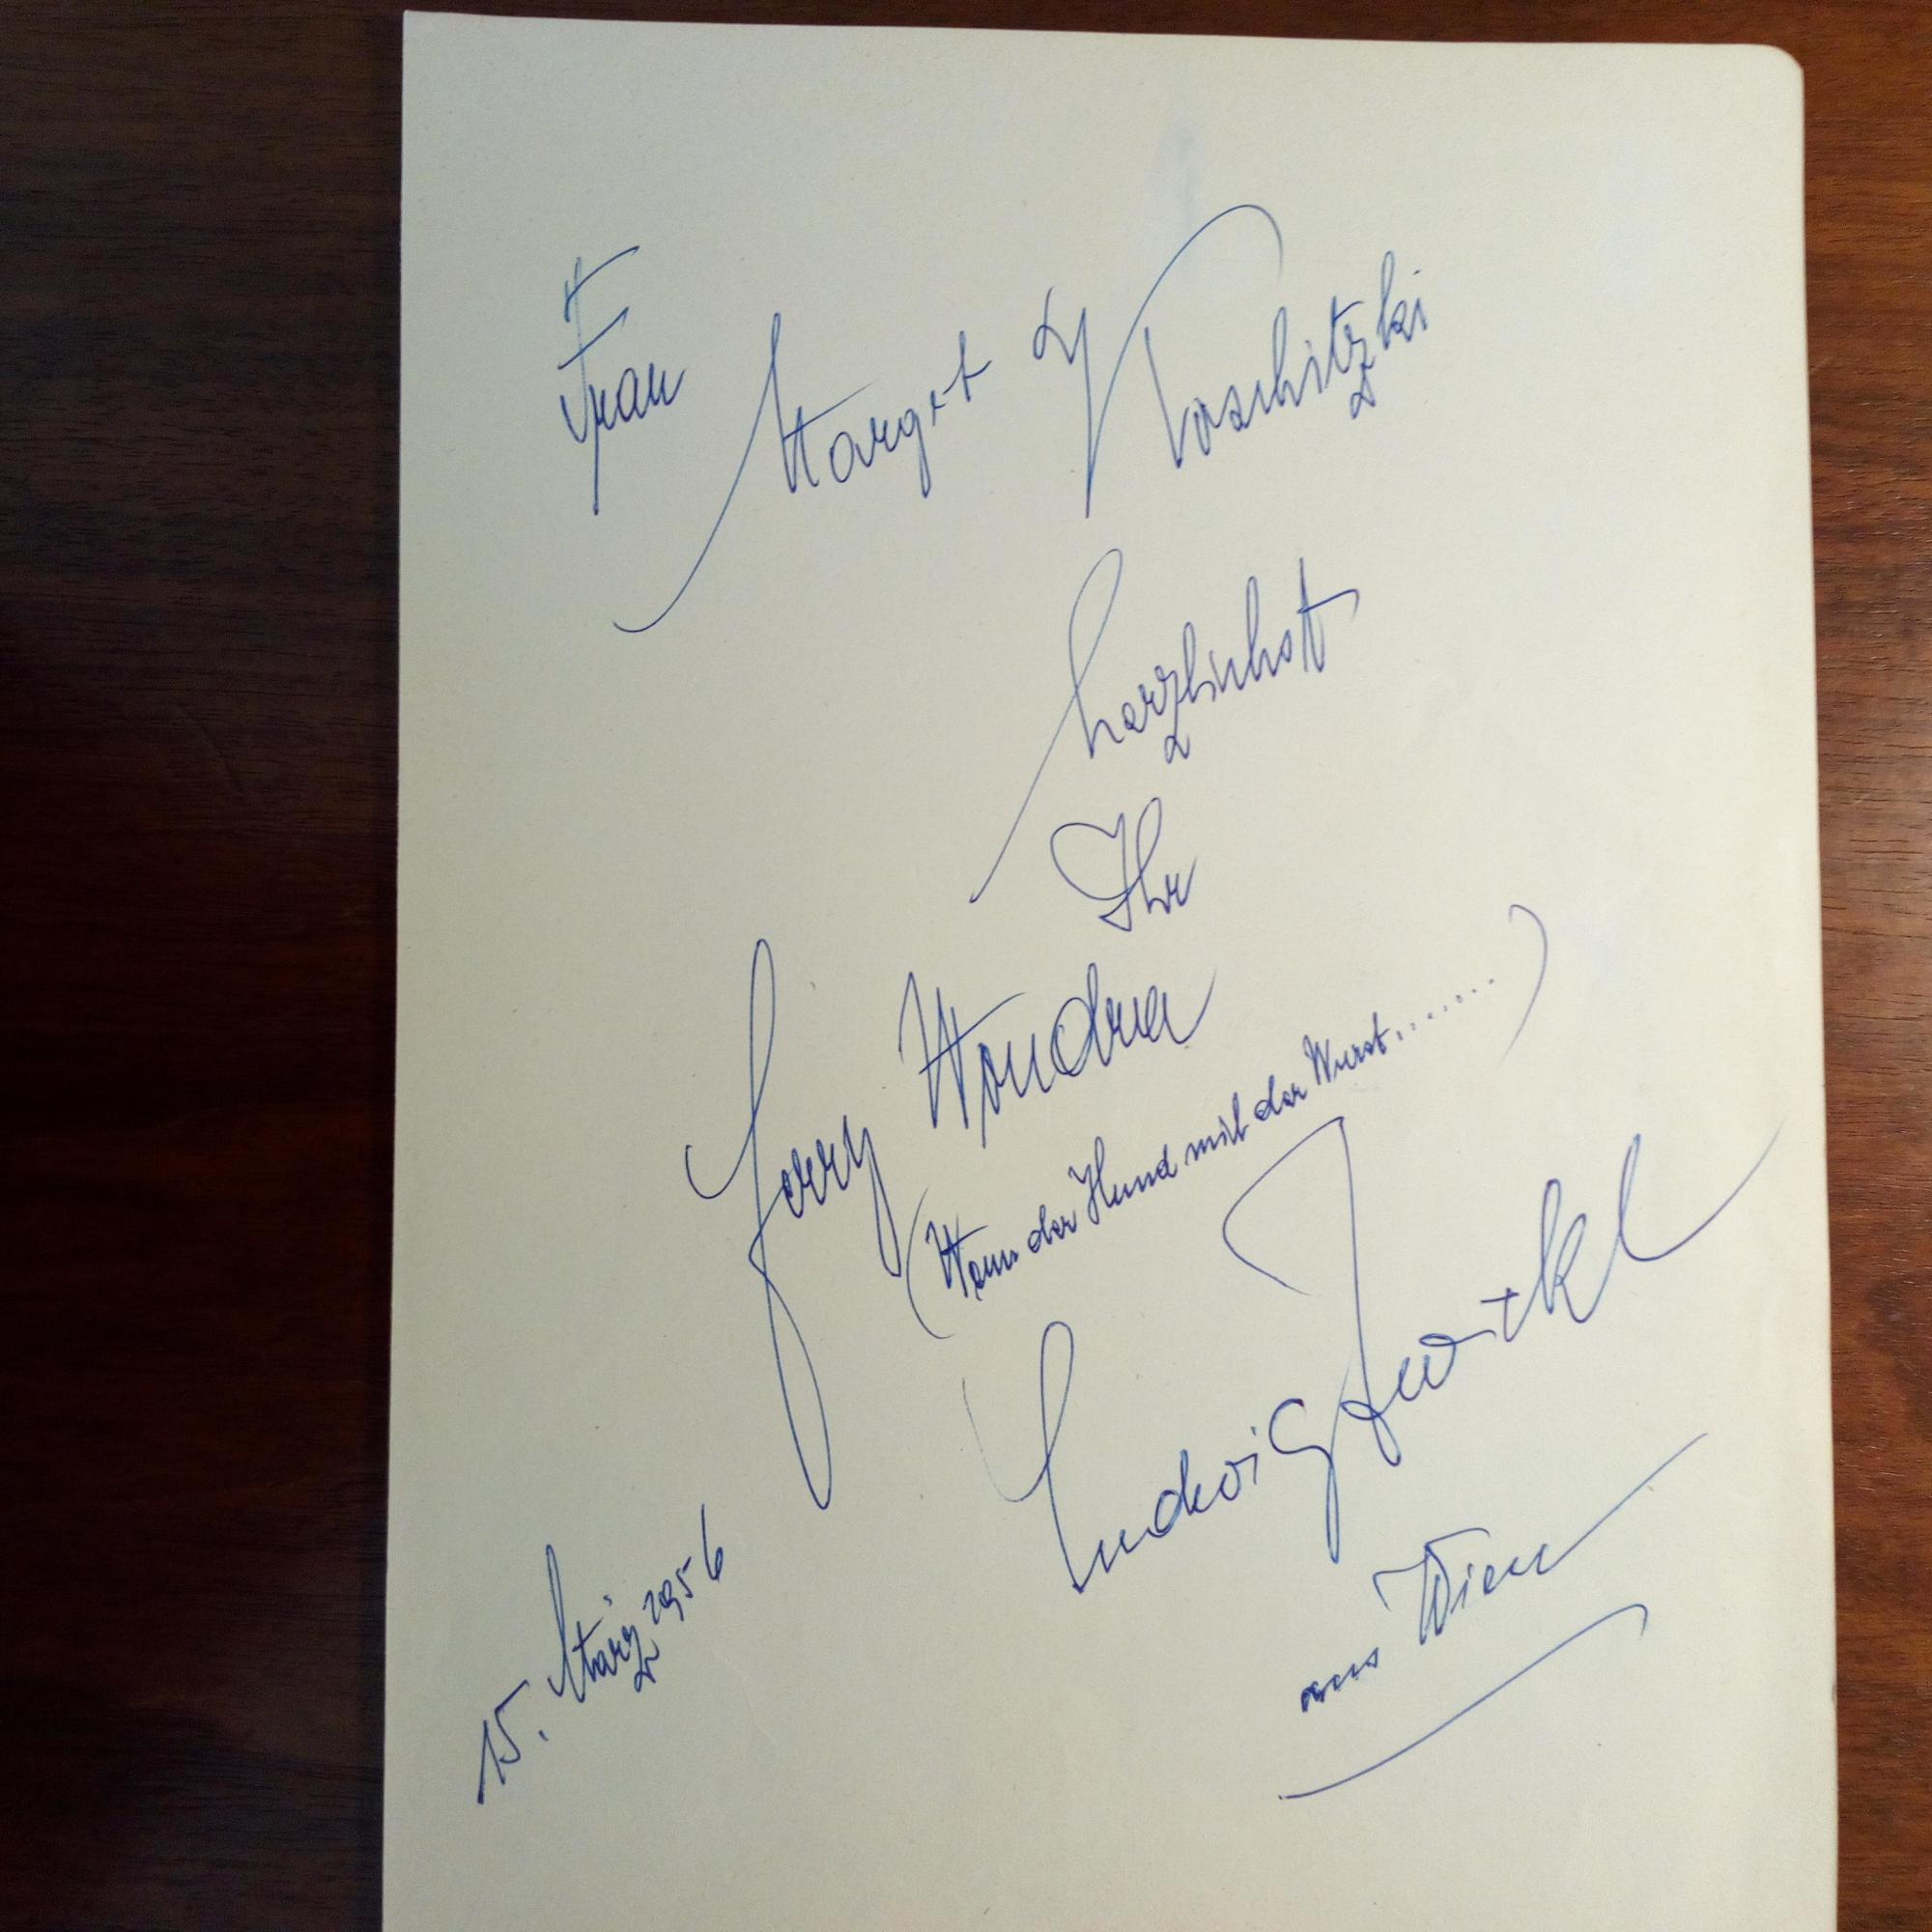 Frau Margret Koschitzki
herzlichst
Ihr
Gerry Wondra
(Wenn der Hund mit der Wurst........)
Ludwig
aus Wien
15. März 1956